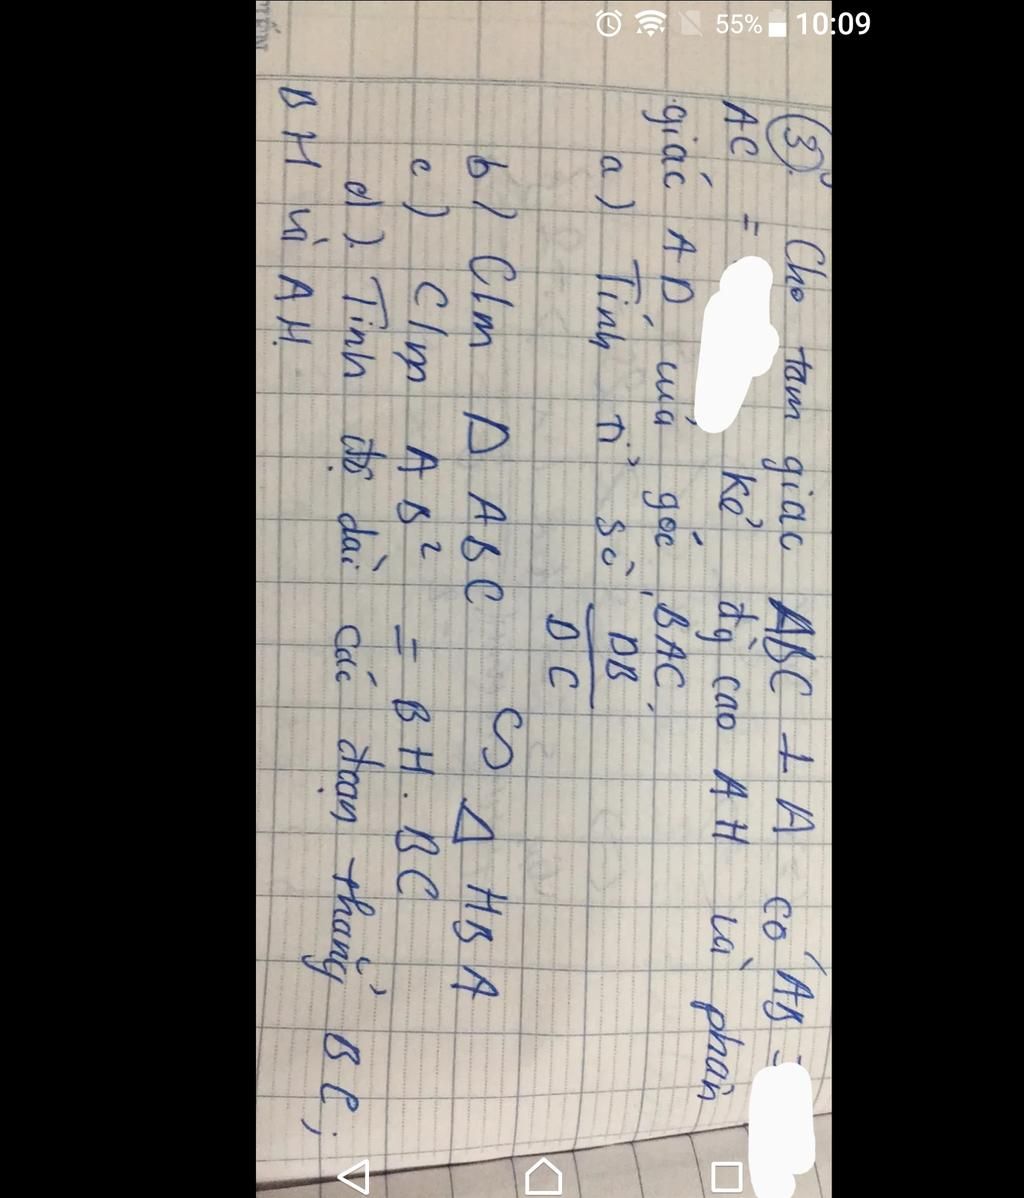 55% 10:09
③ Cho tam giác ABC ⊥ A có AB =
AC = Kẻ đg cao AH và phân
giác AD của góc BAC.
a) Tính tỉ số DB
DC
b) C/m Δ ABC ∽ Δ HBA
c) C/m AB² = BH. BC
d). Tính độ dài các đoạn thẳng BC;
BH và AH.